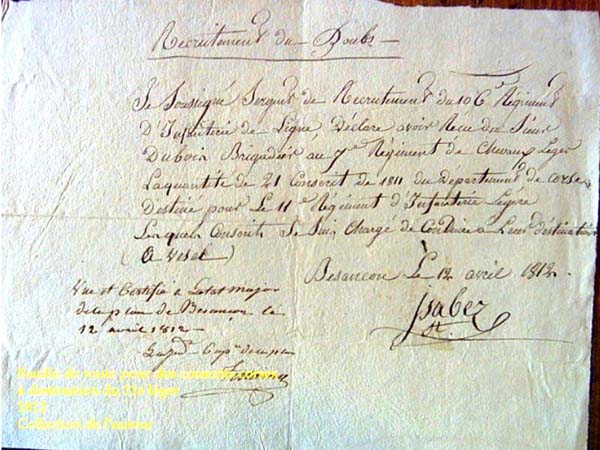 Recrutement du Doubs
Je Soussigné Sergent de Recrutement du 106e Régiment
D'Infanterie de Ligne, Déclare avoir Recu du Sieur
Dubois Brigadier au 7e Régiment de Chevaux Leger
La quantité de 21 Conscrit de 1811 du Departement de Corse
Destiné pour Le 11e Régiment d'Infanterie Légere
Lesquels Conscrits Je suis Chargé de Conduire a Leur déstination
(A Vesel)
Besancon Le 12 avril 1812
Jsabez
Vu et Certifié a Letat major
de la place de Besancon le
12 avril 1812
Feuille de route pour des conscrits
à destination du 11e léger
1812
Collection de l'auteur